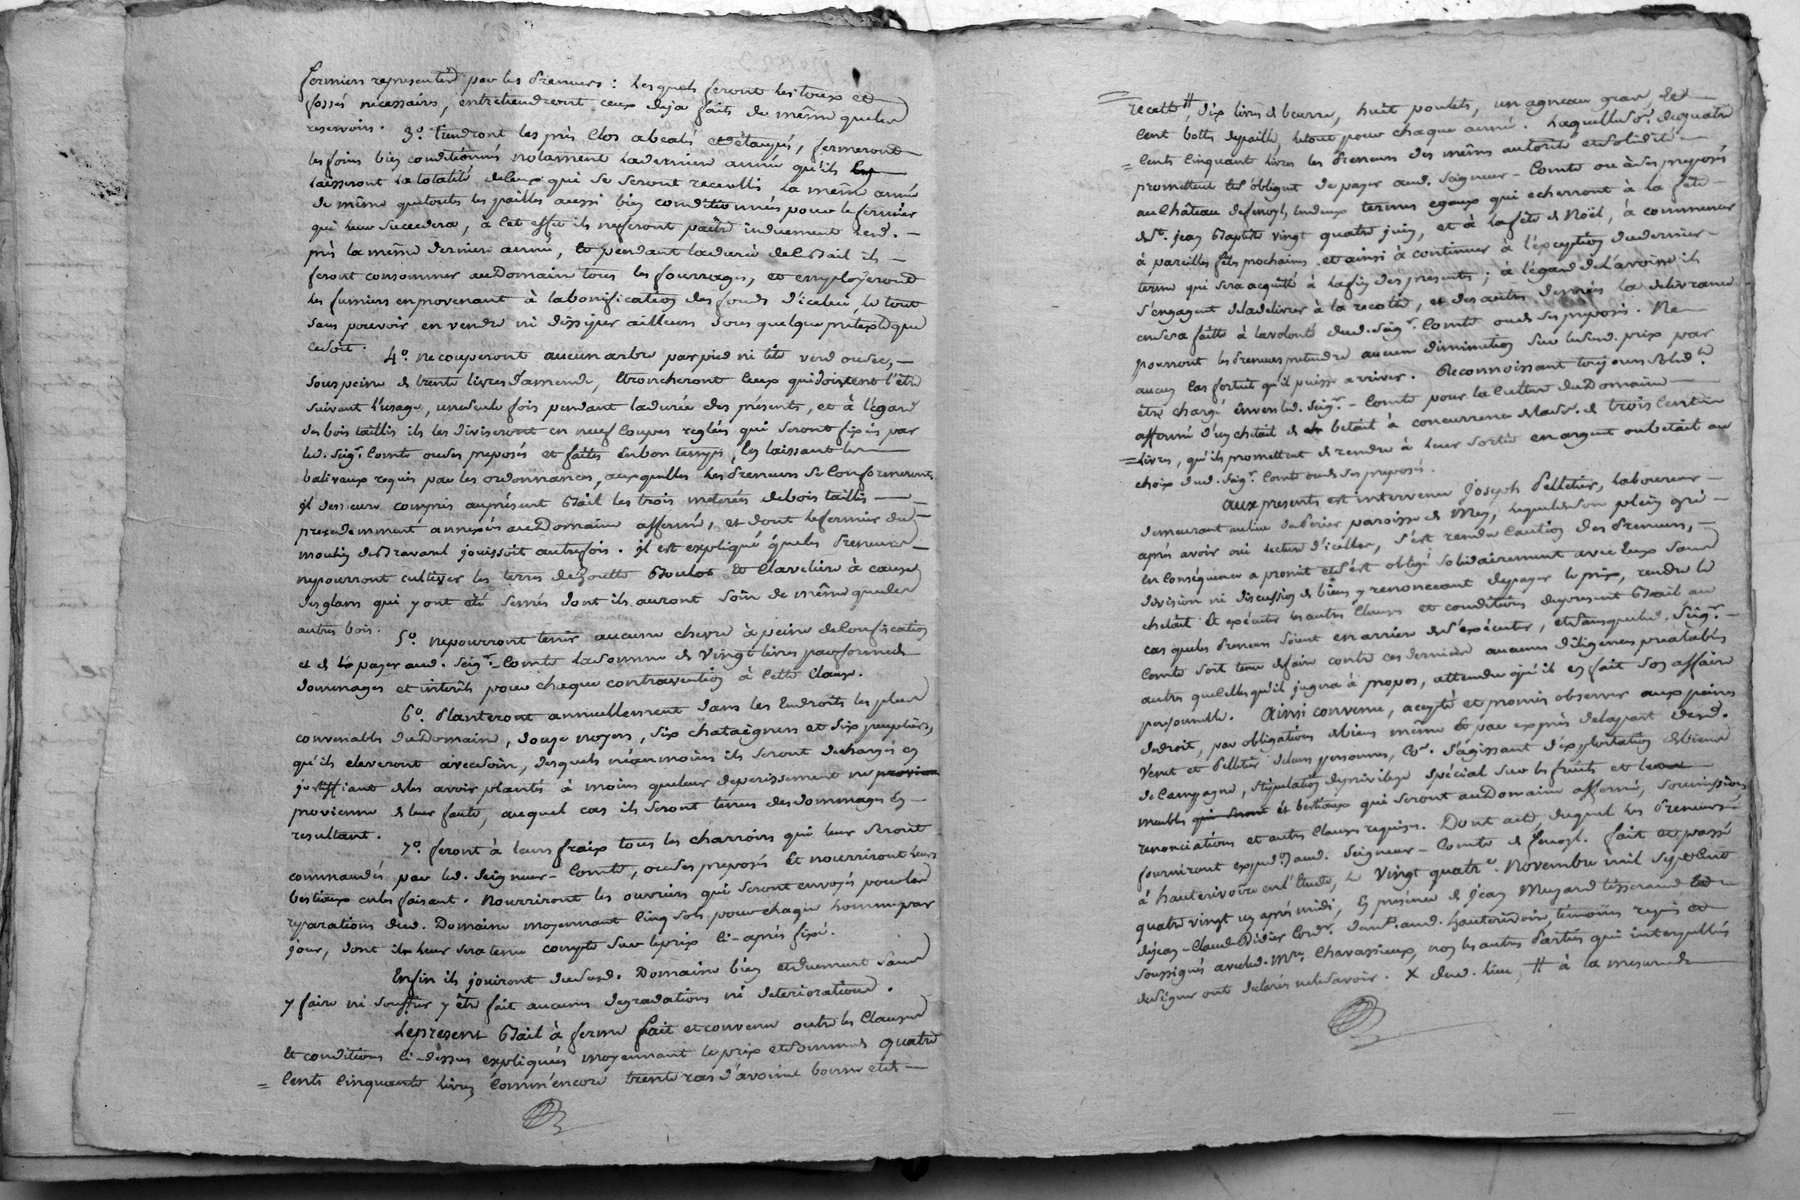 fermiers representés par les Preneurs : Lesquels feront les toux et
fossés nécessaires, entretiendront ceux deja faits de même queles
reservoirs. 3°. tiendront les près Clos abealés et étaupés, fermeront
les foins bien conditionnés notament la derniere année qu'ils
laisseront la totalité de ceux qui se seront receuillis la même année
de même quetoutes les pailles aussi bien conditionnés pour le fermier
qui leur succedera, à cet effet ils ne feront paître induement lesd. -
près la même derniere année, et pendant ladurée de ce Bail ils -
feront consommer audomaine tous les fourrages, et employeront
les fumiers en provenant à labonification des fonds d'icelui le tout
sans pouvoir en vendre ni dissiper ailleurs sous quelque prétexte que
cesoit. 4°. ne couperont aucun arbre par pied ni tête verd ousec, -
sous peine de trente livres d'amende, etroncheront ceux qui doivent l'être
suivant l'usage, uneseule fois pendant ladurée des présents, et à l'égard
des bois taillis ils les diviseront en neuf Coupes reglées qui seront fixées par
led. Seigr. Comte ouses preposés et faites enbon temps, en laissant les
balivaux requis par les ordonnances, auxquelles les Preneurs se Conformeront
il demeure compris auprésent Bail les trois meterées debois taillis
precedemment annexés audomaine affermé, et dont lefermier du
moulin de Bravard jouissoit autrefois. Il est expliqué queles Preneurs
nepourront cultiver les terres de Boulot et Claveliere à cause
des glans qui y ont été semés dont ils auront soin de même queles
autres bois. 5°. nepourront tenir aucune chevre à peine de Confiscation
et de payer aud. Seigr. Comte lasomme de vingt livres par forme de
dommages et interêts pour chaque contravention à Cette Clause.
6°. Planteront annuellement dans les Endroits les plus
convenables du Domaine, douze noyers, six chataigners et six peupliers,
qu'ils eleveront avecsoin, desquels néanmoins ils seront dechargés en
justiffiant deles avoir plantés à moins queleur deperissement ne
provienne de leur faute, auquel cas ils seront tenus des dommages en -
resultant. 7°. feront à leurs fraix tous les charrois qui leur seront
commandés par led. Seigneur - Comte, ouses preposés et nourriront leurs
bestiaux enles faisant. Nourriront les ouvriers qui seront envoyés pour les
reparations dud. Domaine moyennant cinq sols pour chaque homme par
jour, dont il leur sera tenu compte sur leprix ci-après fixé.
Enfin ils jouiront dususd. Domaine bien et duement sans
y faire ni souffrir y être fait aucunes degradations ni deteriorations.
Lepresent Bail à ferme fait et convenu outre les Clauses
et conditions ci-dessus expliquées moyennant le prix et sommes quatre
= Cents Cinquante livres, comm'encore trente ras d'avoine bonne et de -
recette #, dix livres de beurre, huit poulets, un agneau gras, et
cent bottes depaille, letout pour chaque année. Laquelle sô. de quatre
= Cents Cinquante livres les Preneurs des mêmes autorité et solidité
promettent et s'obligent de payer aud. Seigneur - Comte ou à ses preposés
au Château de fenoyl, en deux termes egaux qui echerront à la fête
de St. Jean Baptiste vingt quatre juin, et à lafête de Noël, à commencer
à pareilles fêtes prochaines et ainsi à continuer à l'exception dudernier
terme qui sera acquitté à lafin des presents ; à l'égard de l'avoine ils
s'engagent de la delivrer à la recolte, et des autres denrées la delivrance
ensera faitte à lavolonté dud. Seigr. Comte oude ses preposés. Ne
pourront les Preneurs pretendre aucune diminution sur lesusd. prix par
aucun Cas fortuit qu'il puisse arriver. Reconnoissant toujours solidt.
être chargés envers led. Seigr. - Comte pour la Culture du Domaine
affermé d'un cheptail de betail à concurrence de la sô. de trois Cents
= Livres, qu'ils promettent de rendre à leur sortie en argent oubetail au
choix dud. Seigr. Comte oude ses preposés.
Aux presents est intervenu Joseph Pelletier, laboureur
demeurant aulieu du Perier paroisse de Mey, lequel deson plein gré -
après avoir oui lecture d'icelles, s'est rendu Caution des Preneurs, -
en Conséquence a promit et s'est obligé solidairement avec Eux sans
division ni discussion de biens y renonceant depayer le prix, rendre le
cheptail et exécuter les autres Clauses et conditions dupresent Bail au
cas queles Preneurs soient en arriere des'exécuter, et sans queled. Seigr. -
Comte soit tenu defaire contre ces derniers aucunes diligences prealables
autres que celles qu'il jugera à propos, attendu qu'il en fait son affaire
personnelle. Ainsi convenu, acepté et promis observer aux peines
dedroit, par obligations de biens même et par exprès delapart desd.
Venet et Pelletier deleurs personnes, Cr. s'agissant d'exploitation de biens
de Campagne, stipulation de privilege spécial sur les fruits et
meubles et bestiaux qui seront audomaine affermé, soumissions
renonciations et autres Clauses requises. Dont acte, duquel les Preneurs
fourniront expedon. aud. Seigneur - Comte de fenoyl. fait et passé
à hauterivoire en l'Etude, le vingt quatre. Novembre mil sept cent
quatre vingt un après midi, en présence de Jean Muzard tisserand
dejean - Claude Didier Cordr. demts. aud. hauterivoire, témoins requis et
soussignés avecled. Mre. Chavassieux, non les autres Parties qui interpellées
designer ont declarés nelesavoir. X dud. lieu, # à la mesure de